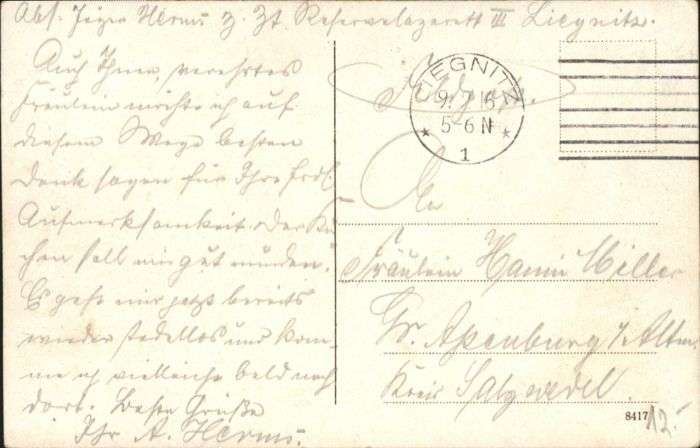 Abs. Jäger Herms z. Zt. Reservelazarett III Liegnitz.
Auch Ihnen, verehrtes
Fräulein möchte ich auf
diesem Wege besten
Dank sagen für Ihre frdl.
Aufmerksamkeit. Der Ku-
chen soll mir gut munden.
Es geht mir jetzt bereits
wieder tadellos und kom-
me ich vielleicht bald nach
dort. Beste Grüße
Ihr A. Herms.
LIEGNITZ
5-6 N
* 1 *
An
Fräulein Hanni Müller
Gr. Apenburg i/Altm.
Kreis Salzwedel.
8417
12.